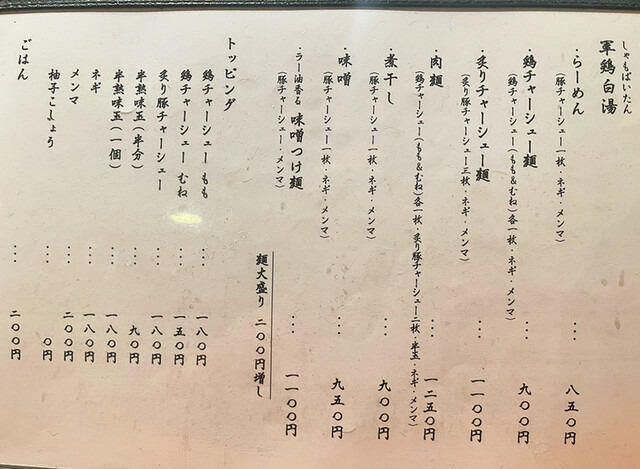 しゃもぱいたん
軍鶏白湯
・らーめん … 八五〇円
(豚チャーシュー一枚・ネギ・メンマ)
・鶏チャーシュー麺 … 九〇〇円
(鶏チャーシュー(もも&むね)各一枚・ネギ・メンマ)
・炙りチャーシュー麺 … 一一〇〇円
(炙り豚チャーシュー三枚・ネギ・メンマ)
・肉麺 … 一二五〇円
(鶏チャーシュー(もも&むね)各一枚・炙り豚チャーシュー二枚・半玉・ネギ・メンマ)
・煮干し … 九〇〇円
(豚チャーシュー一枚・ネギ・メンマ)
・味噌 … 九五〇円
(豚チャーシュー一枚・ネギ・メンマ)
・ラー油香る 味噌つけ麺 … 一一〇〇円
(豚チャーシュー・メンマ)
麺大盛り 二〇〇円増し
トッピング
鶏チャーシュー もも … 一八〇円
鶏チャーシュー むね … 一五〇円
炙り豚チャーシュー … 一八〇円
半熟味玉(半分) … 九〇円
半熟味玉(一個) … 一八〇円
ネギ … 一八〇円
メンマ … 二〇〇円
柚子こしょう … 〇円
ごはん … 二〇〇円